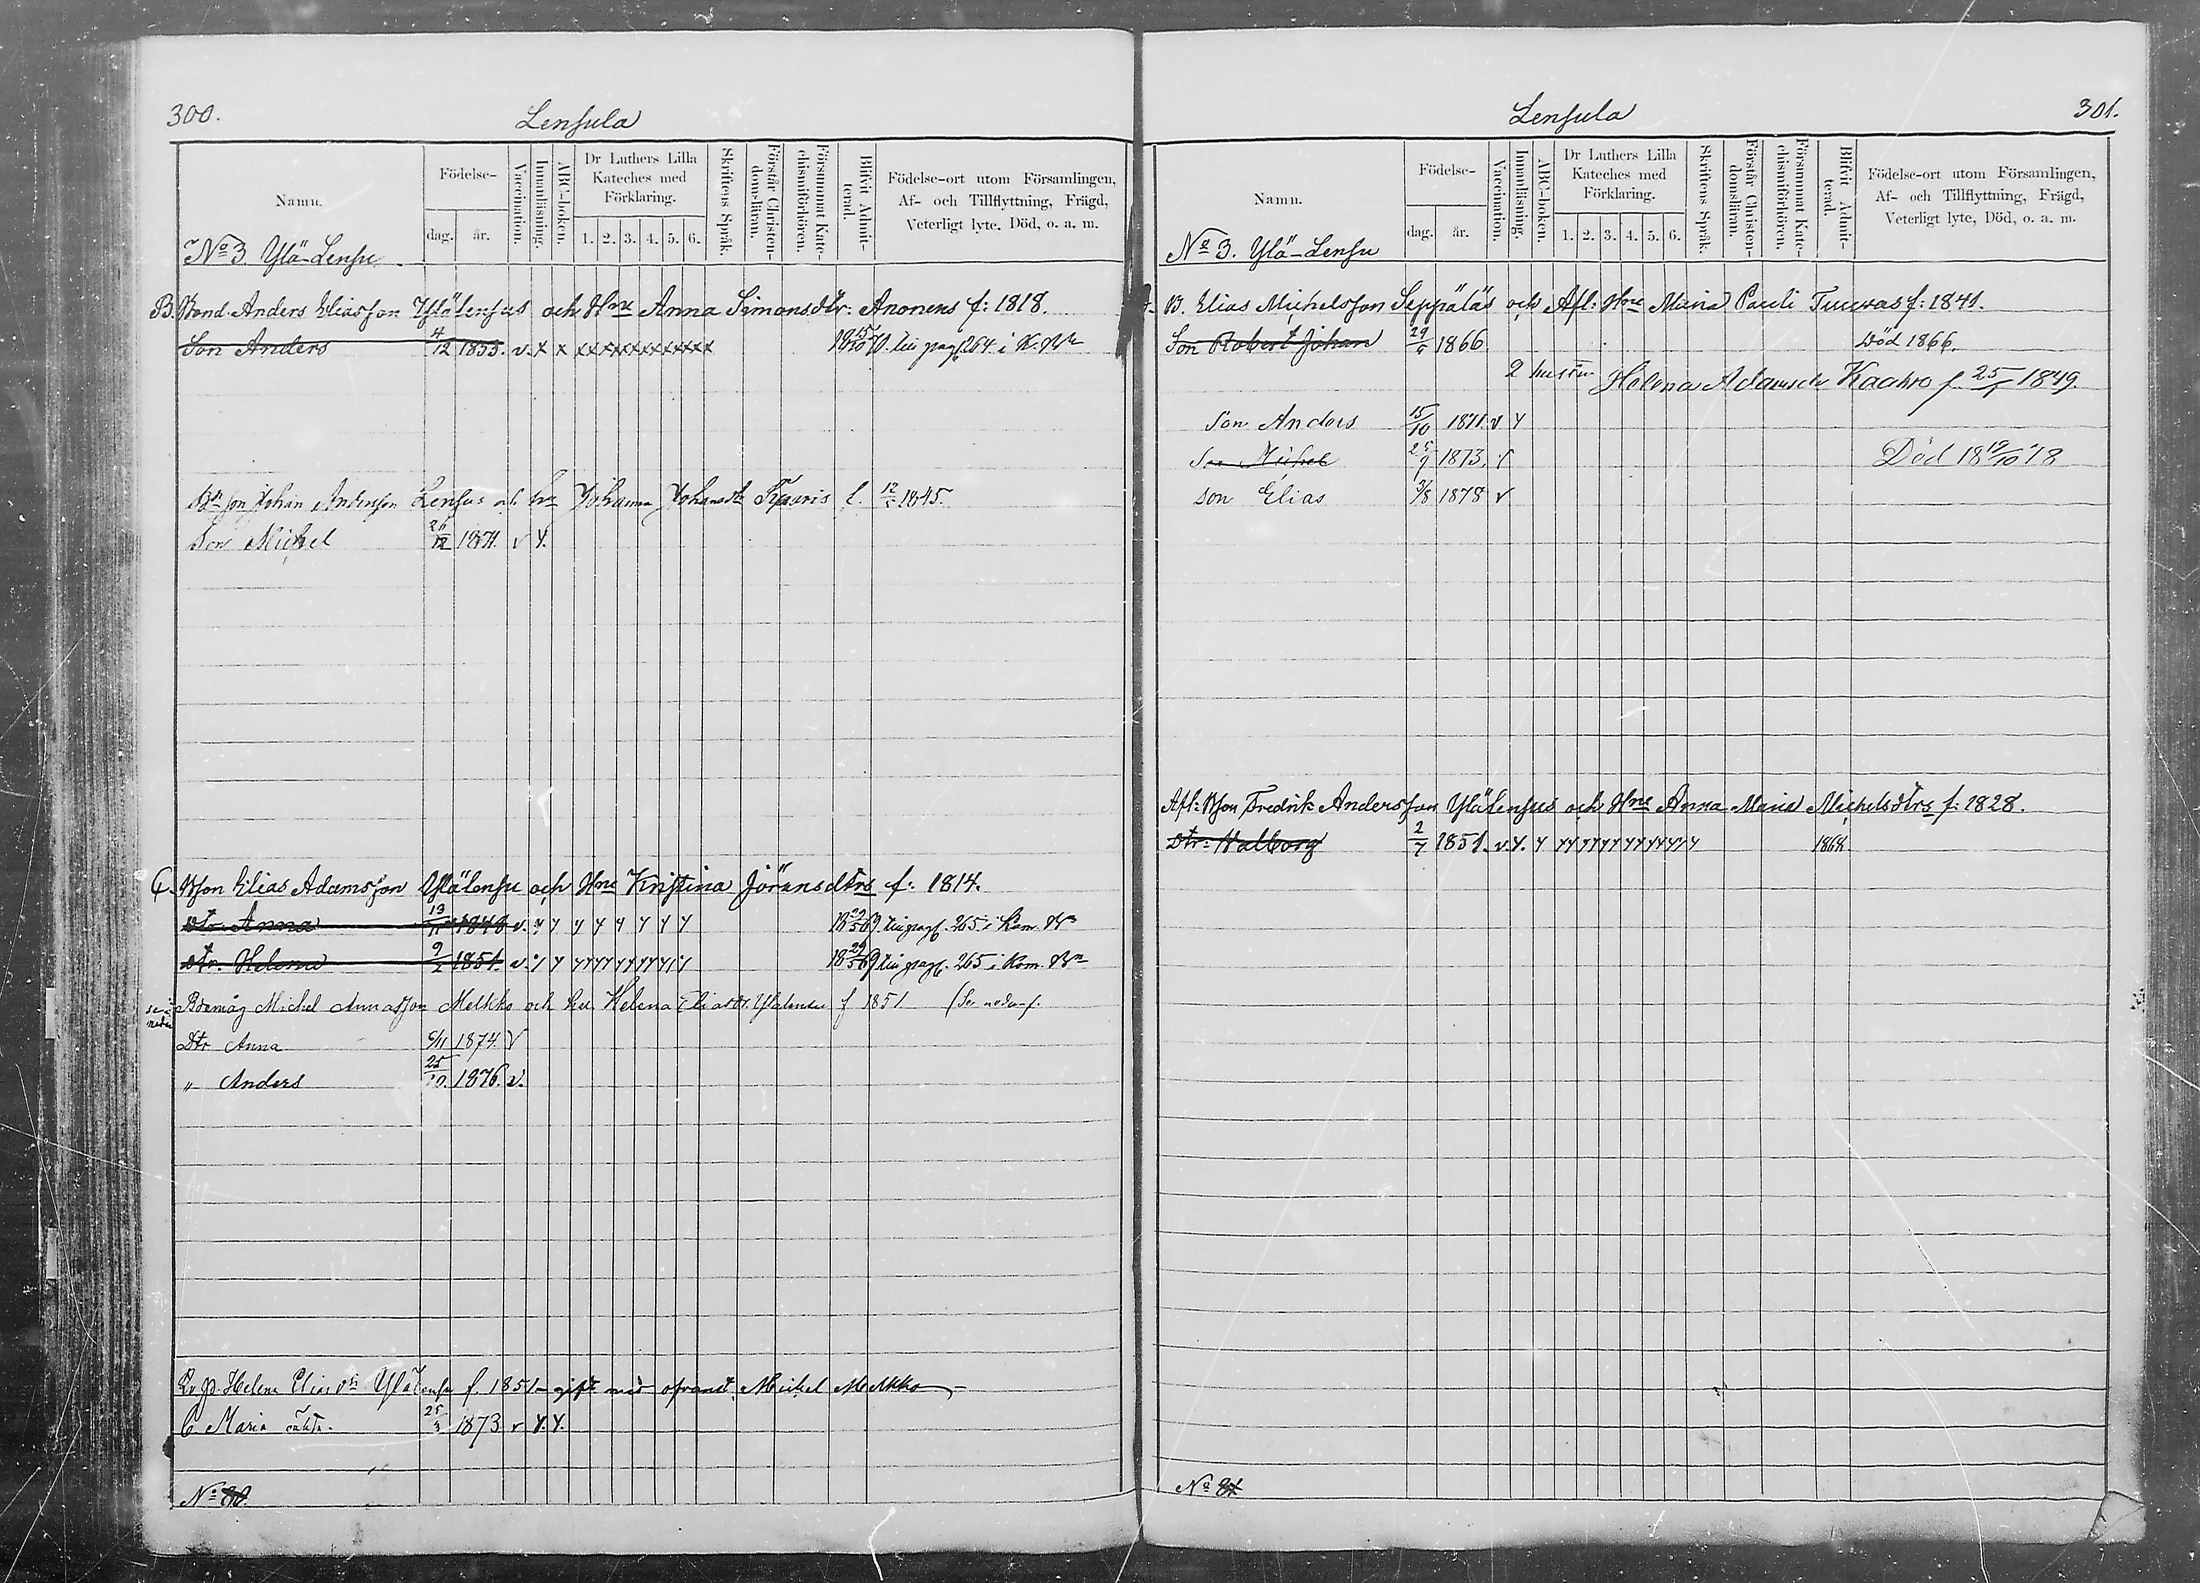 300.
Lensula
Namn.
Födelse-
dag.
år.
Vaccination.
Innanläsning.
ABC-boken.
Dr Luthers Lilla
Kateches med
Förklaring.
1. 2. 3. 4. 5. 6.
Skriftens Språk.
Förstår Christen-
doms-läran.
Försummat Kate-
chismiförhören.
Blifvit Admit-
terad.
Födelse-ort utom Församlingen,
Af- och Tillflyttning, Frägd,
Veterligt lyte, Död, o. a. m.
No 3 Ylä-Lensu
B. Bond. Anders Eliasson Ylälensus och Hru Anna Simonsdtr: Anonens f: 1818.
Son Anders 4/12 1853. v. x x xxxxxxxxxxxx 18 15/10 70 pag. 264 i K. Bn
Bn son Johan Andersson Lensus och hu Johanna Johansdtr f. 12 1845.
Son Michel 12 1871. v Y.
C. Bson Elias Adamsson Ylälensu och Hru Kristina Jöransdtrs f: 1814.
Dtr. Anna 1848 v. y y y y y y y y 18 29/5 69 pag. 265 i Kom. Bn
Dtr. Helena 9/2 1851. v. y y yyyyyyyyyy 18 29/5 69 pag. 265 i Kom. Bn
se nedan Bdemåg Michel Annasson Melkko och hu Helena Eliasdr. Ylälensu f 1851 (Se nedan).
Dtr Anna 6/11 1874. V
" Anders 25/10. 1876. v.
Helena Eliasdtr Ylälensu f. 1851 gift med ofvanst. Michel Melkko
Maria oäkta. 25/3 1873 v Y. Y.
No 80
301.
Lensula
Namn.
Födelse-
dag.
år.
Vaccination.
Innanläsning.
ABC-boken.
Dr Luthers Lilla
Kateches med
Förklaring.
1. 2. 3. 4. 5. 6.
Skriftens Språk.
Förstår Christen-
domsläran.
Försummat Kate-
chismiförhören.
Blifvit Admit-
terad.
Födelse-ort utom Församlingen,
Af- och Tillflyttning, Frägd,
Veterligt lyte, Död, o. a. m.
No 3. Ylä-Lensu
B. Elias Michelsson Seppäläs och Afl: Hru Maria Pauli Tuuvas f: 1841.
Son Robert Johan 29 1866. Död 1866.
2 hustru Helena Adamsdr Kaahro f. 25 1849.
Son Anders 15/10 1871. v Y
Son Michel 25/9 1873. Y Död 18 12/10 78
Son Elias 3/8 1878 v
Afl: Bson Fredrik Andersson Ylälensus och Hru Anna Maria Michelsdtrs f: 1828.
Dtr: Walborg 2/7 1851. v. Y. Y yyyyyyyyyyyy 1868
No 81